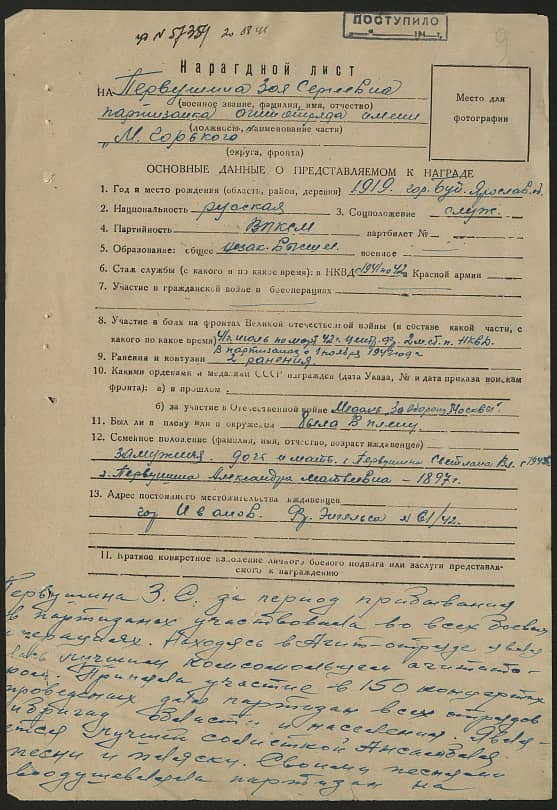 ф N 5/351 20 08 41
ПОСТУПИЛО
9
Нарагдной лист
Место для
фотографии
НА Первушина Зоя Сергеевна
(военное звание, фамилия, имя, отчество)
партизанка агитотряда имени
(должность, наименование части)
„М. Горького
(округа, фронта)
ОСНОВНЫЕ ДАННЫЕ О ПРЕДСТАВЛЯЕМОМ К НАГРАДЕ
1. Год и место рождения (область, район, деревня) 1919. гор. Буй, Ярослав.
2. Национальность русская 3. Соцположение служ.
4. Партийность ВЛКСМ партбилет №
5. Образование: общее незак. высшее военное
6. Стаж службы (с какого и по какое время): в НКВД с 1941 по 42 в Красной армии
7. Участие в гражданской войне и боеоперациях
8. Участие в боях на фронтах Великой отечественной войны (в составе какой части, с
какого по какое время) июль по март 42 г. 2 п. НКВД.
В партизанах с 1 ноября 1942 года
9. Ранения и контузии 2 ранения.
10. Какими орденами и медалями СССР награжден (дата Указа, № и дата приказа войскам
фронта): а) в прошлом
б) за участие в Отечественной войне Медаль За оборону Москвы"
11. Был ли в плену или в окружении была в плену
12. Семейное положение (фамилия, имя, отчество, возраст иждивенцев)
замужняя. дочь и мать. 1. Первушина Светлана Вл.
2. Первушина Александра Матвеевна - 1897 г.
13. Адрес постоянного местожительства иждивенцев
гор Иваново. Энгельса 61/42.
II. Краткое конкретное изложение личного боевого подвига или заслуги представля-
ского к награждению
Первушина З. С. за период прибывания
в партизанах участвовала во всех боевых
операциях. Находясь в Агит-отряде явля
лась лучшим комсомольцем агитато-
ром. Приняла участие в 150 концертах
проведеных для партизан всех отрядов
и бригад области и населения. Явля-
ется лучшей солисткой Ансамбля
песни и пляски. Своими песнями
воодушевляла партизан на